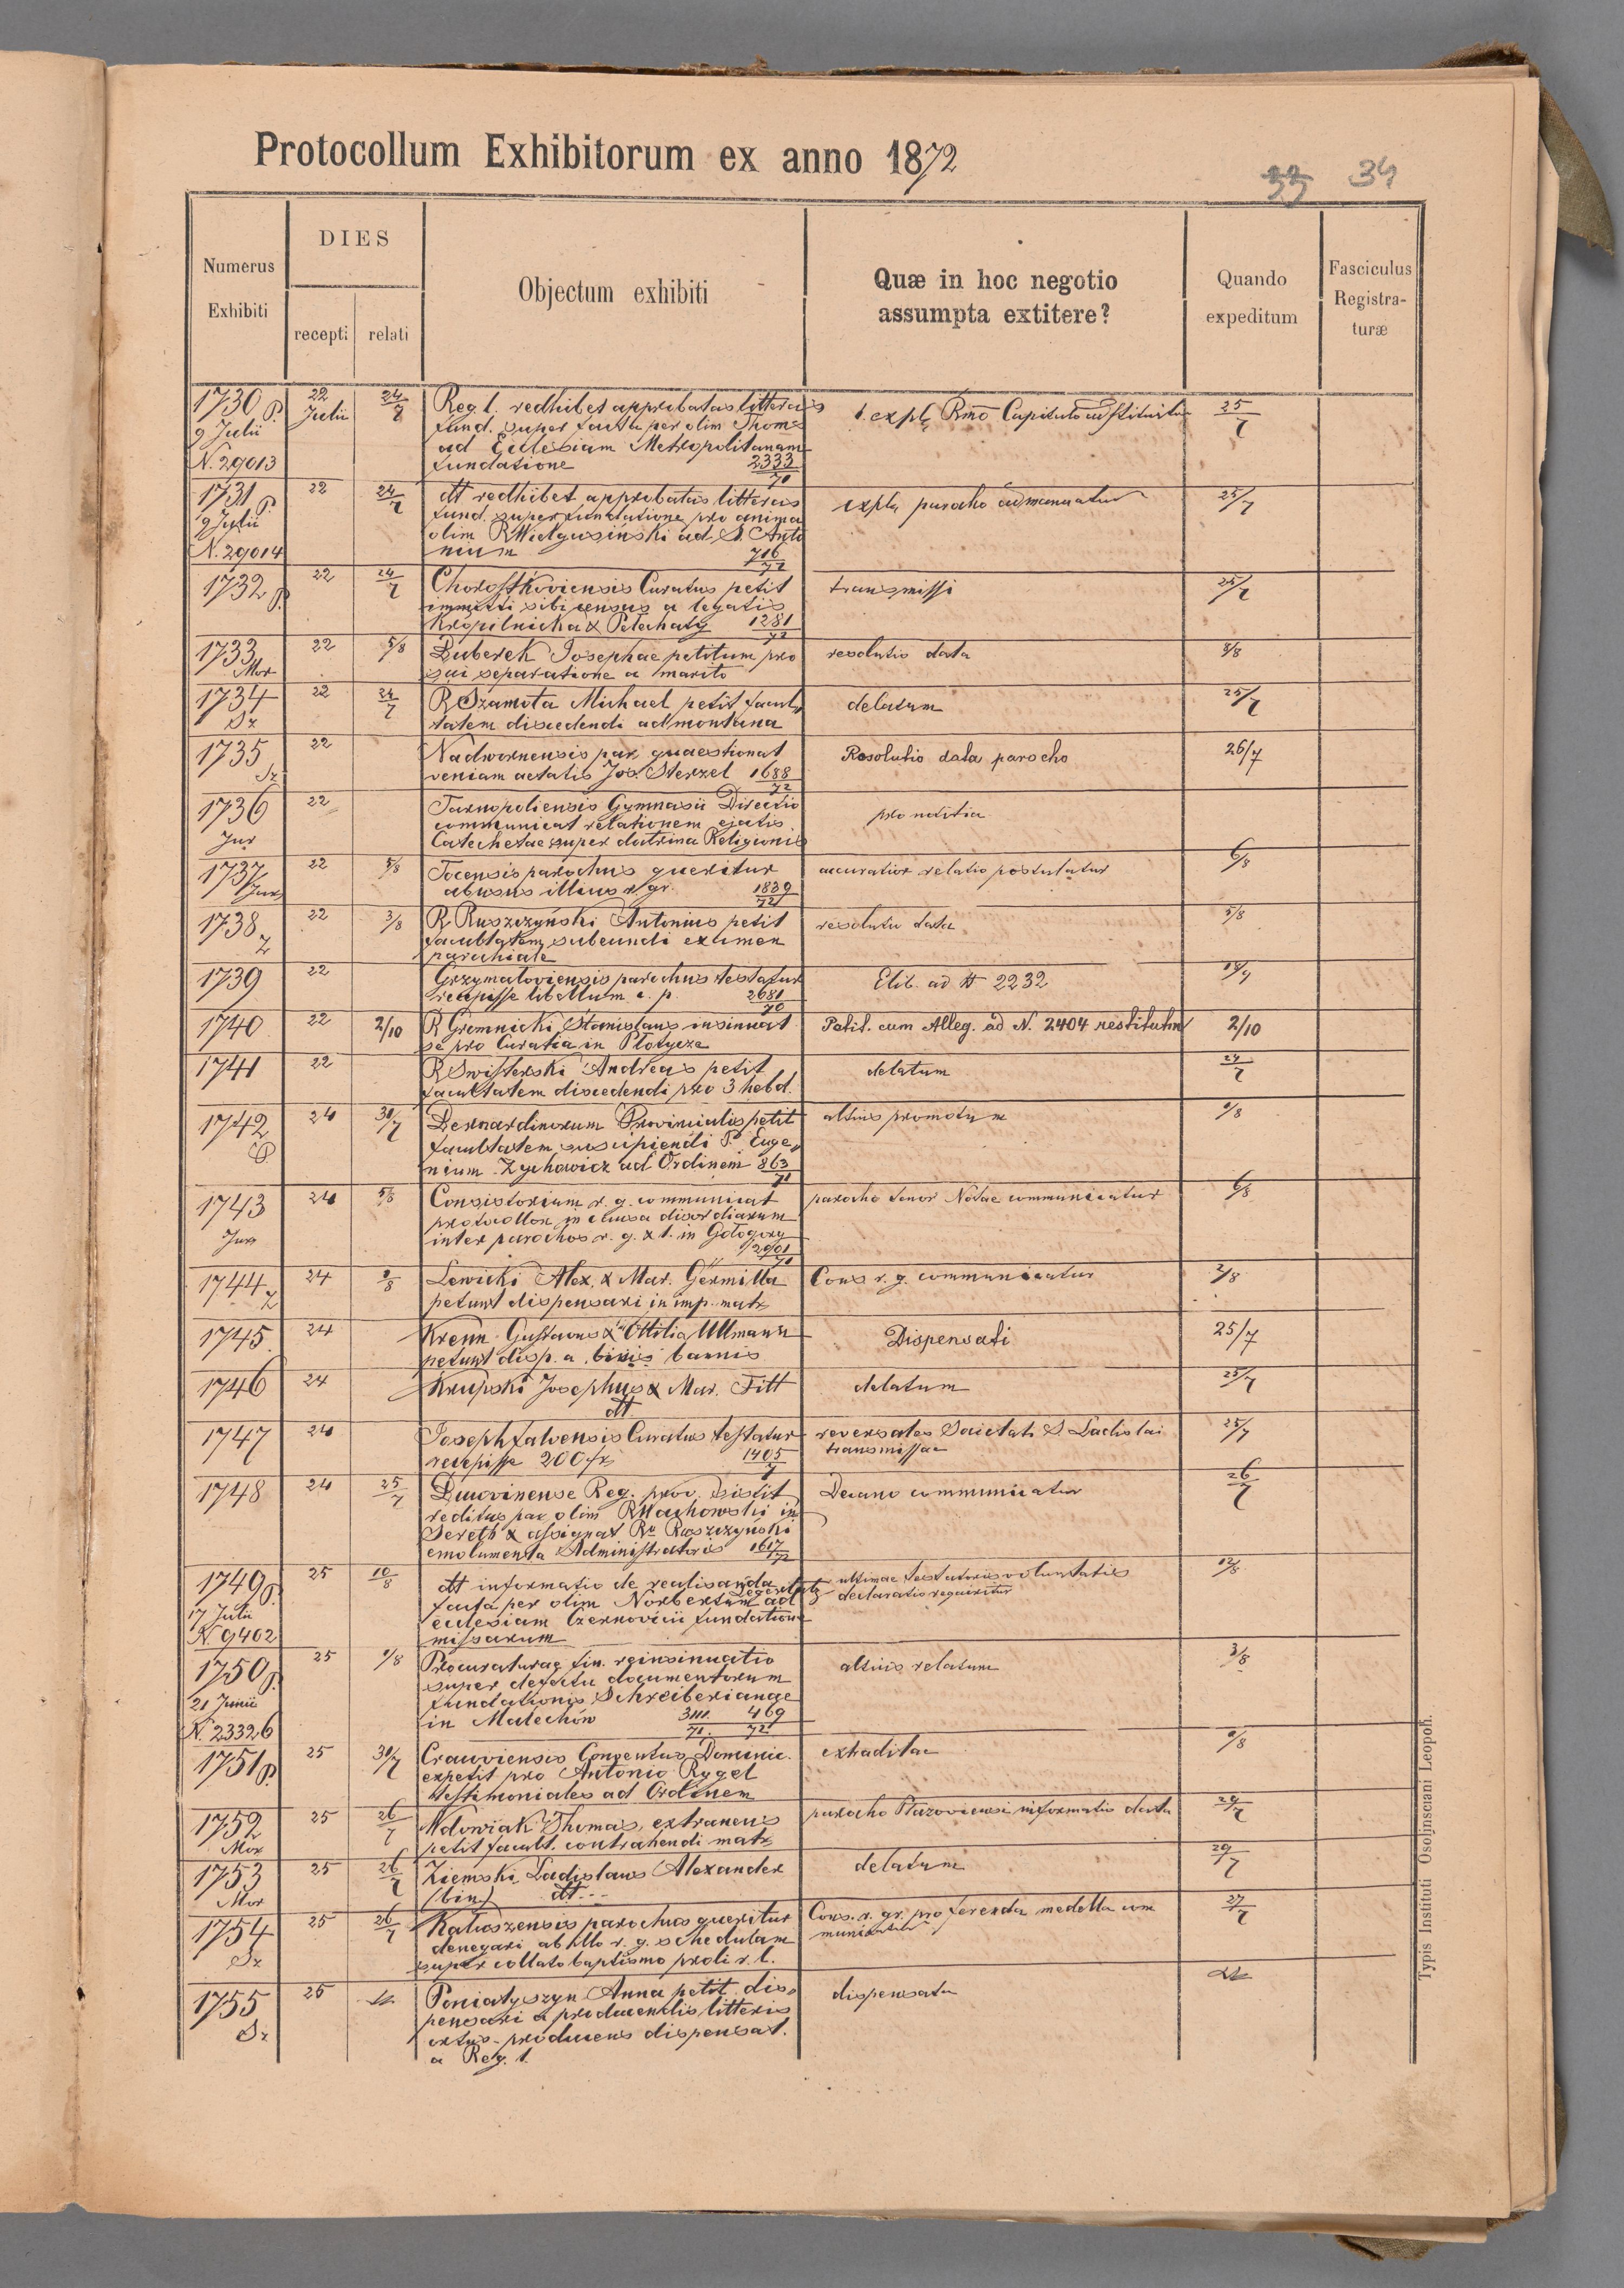 Protocollum Exhibitorum ex anno 1872
33 34
Numerus Exhibiti
DIES
recepti
relati
Objectum exhibiti
Quæ in hoc negotio assumpta extitere?
Quando expeditum
Fasciculus Registra-
turæ
1730 P. 22 Julii 24/7 Reg. l. redhibet approbatas litteras 1. expl. Rmo Capitulo 25/7
9 Julii fund. super facta per olim Thoms
ad Ecclesiam Metropolitanam
N. 29013 fundatione 2333/71
1731 P 22 24/7 dt redhibet approbatas litteras expla parocho 25/7
9 Julii fund. super fundatione pro anima
olim R ad S. Anto
N. 29014 nium 716/72
1732 P. 22 24/7 Chorostkoviensis Curatus petit transmissi 25/7
immitti sibi census a legatis
Kropilnicka & Petechaty 1281/72
1733 22 5/8 Zuberek Josephae petitum pro resolutio data 8/8
Mor sui separatione a marito
1734 22 24/7 R Szamota Michael petit facul delatum 25/7
Sz tatem discedendi ad montana
1735 22 Nadwornensis par. quaestionat Resolutio data parocho 26/7
Sz veniam aetatis Jos. Sterzel 1688/72
1736 22 Tarnopoliensis Gymnasii Directio pro notitia
communicat relationem ejatis
Jur Catechetae super doctrina Religionis
1737 22 5/8 Tocensis parochus queritur accuratior relatio postulatur 6/8
Jur abusus illius r. gr. 1839/72
1738 22 3/8 R Ruszczyński Antonius petit resolutio data 5/8
Z facultatem subeundi examen
parochiale
1739 22 Grzymatoviensis parochus testatur Elib. ad N 2232 18/9
recepisse libellum c. p. 2681/70
1740 22 2/10 R Gromnicki Stanislaus insinuat Petit. cum Alleg. ad N. 2404 restitutm 2/10
se pro Curatia in Płotycza
1741 22 R Swisterski Andreas petit delatum 24/7
facultatem discedendi pro 3 hebd.
1742 24 30/7 Bernardinorum Provincialis petit altius promotum 1/8
P facultatem suscipiendi P. Euge
nium Zychowicz ad Ordinem 863/71
1743 24 5/8 Consistorium r. g. communicat parocho tenor Notae communicatur 6/8
protocollon in causa discordiarum
Jur inter parochos r. g. & l. in Gołogory
2901/71
1744 24 2/8 Lewicki Alex. & Mar. Germilla Cons r. g. communicatur 2/8
Z petunt dispensari in imp. matr
1745 24 Krenn Gustavus & Ottilia Ullmann Dispensati 25/7
petunt disp. a binis bannis
1746 24 Krupski Josephus & Mar. Titt delatum 25/7
dt
1747 24 Josephfalvensis Curatus testatur reversales Societati S. Ladislai 25/7
recepisse 200 fr 1405/7 transmissae
1748 24 25/7 Bucovinense Reg. prov. sistit Decano communicatur 26/7
reditus par olim R Machowski in
Sereth & assignat Ro Ruszczyński
emolumenta Administratoris 1617/72
1749 P. 25 10/8 dt informatio de realisanda ultimae testatoris voluntatis 12/8
17 Julii facta per olim Norbertum ad declaratio requiritur
ecclesiam Czernovicii fundatione
N 9402 missarum
1750 P. 25 1/8 Procuraturae fin. reinsinuatio altius relatum 3/8
super defectu documentorum
21 Junii fundationis Schreiberianae
N. 23326 in Malechów 3111/71. 469/72
1751 P. 25 30/7 Cracoviensis Conventus Dominic. extraditae 1/8
expetit pro Antonio Rygel
testimoniales ad Ordinem
1752 25 26/7 Wdowiak Thomas, extraneus parocho Płazoviensi informatio data 29/7
Mor petit facult. contrahendi matr
1753 25 26/7 Ziemski Ladislaus Alexander delatum 29/7
Mor (bin) dt
1754 25 26/7 Kałuszensis parochus queritur Cons. r. gr. pro ferenda medella com 27/7
denegari ab illo r. g. schedulam municatur
Sz super collato baptismo proli r. l.
1755 25 Poniatyszyn Anna petit dis- dispensata
pensari a producendis litteris
Sz ortus - producens dispensat.
a Reg. l.
Typis Instituti Ossolinsciani Leopoli.